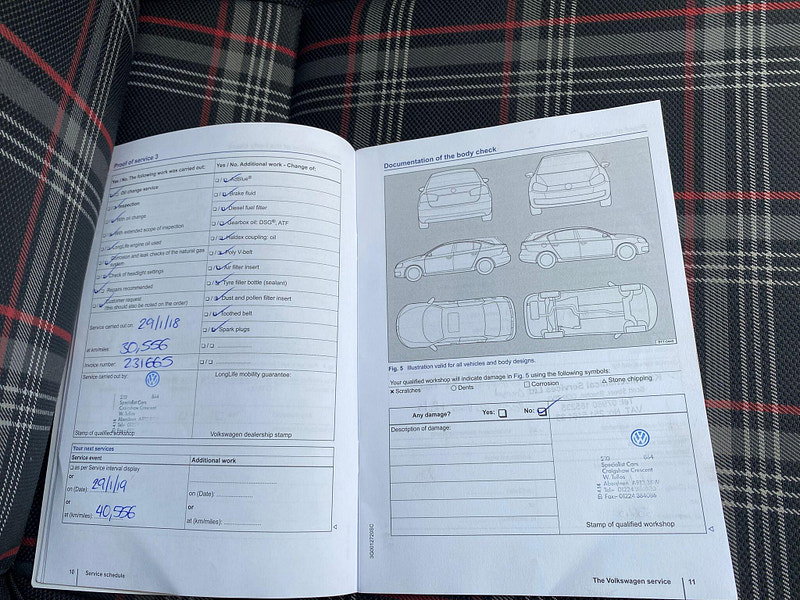 Proof of service 3
Yes / No. The following work was carried out:
Oil change service
Inspection
With oil change
With extended scope of inspection
LongLife engine oil used
Corrosion and leak checks of the natural gas
system
Check of headlight settings
Repairs recommended
Customer request
(this should also be noted on the order)
Service carried out on 29/1/18
at km/miles: 30,556
Invoice number: 231665
Service carried out by:
Specialist Cars
Craigshaw Crescent
W. Tullos
Stamp of qualified workshop
Yes / No. Additional work - Change of:
AdBlue®
Brake fluid
Diesel fuel filter
Gearbox oil: DSG®, ATF
Haldex coupling: oil
Poly V-belt
Air filter insert
Tyre filler bottle (sealant)
Dust and pollen filter insert
Toothed belt
Spark plugs
LongLife mobility guarantee:
Volkswagen dealership stamp
Your next services
Service event
as per Service interval display
or
on (Date): 29/1/19
or
at (km/miles): 40,556
Additional work
on (Date):
or
at (km/miles):
10 Service schedule
Documentation of the body check
Fig. 5 Illustration valid for all vehicles and body designs.
Your qualified workshop will indicate damage in Fig. 5 using the following symbols:
× Scratches ○ Dents □ Corrosion △ Stone chipping
Any damage? Yes: No:
Description of damage:
Specialist Cars
Craigshaw Crescent
W. Tullos
Aberdeen
Stamp of qualified workshop
The Volkswagen service 11